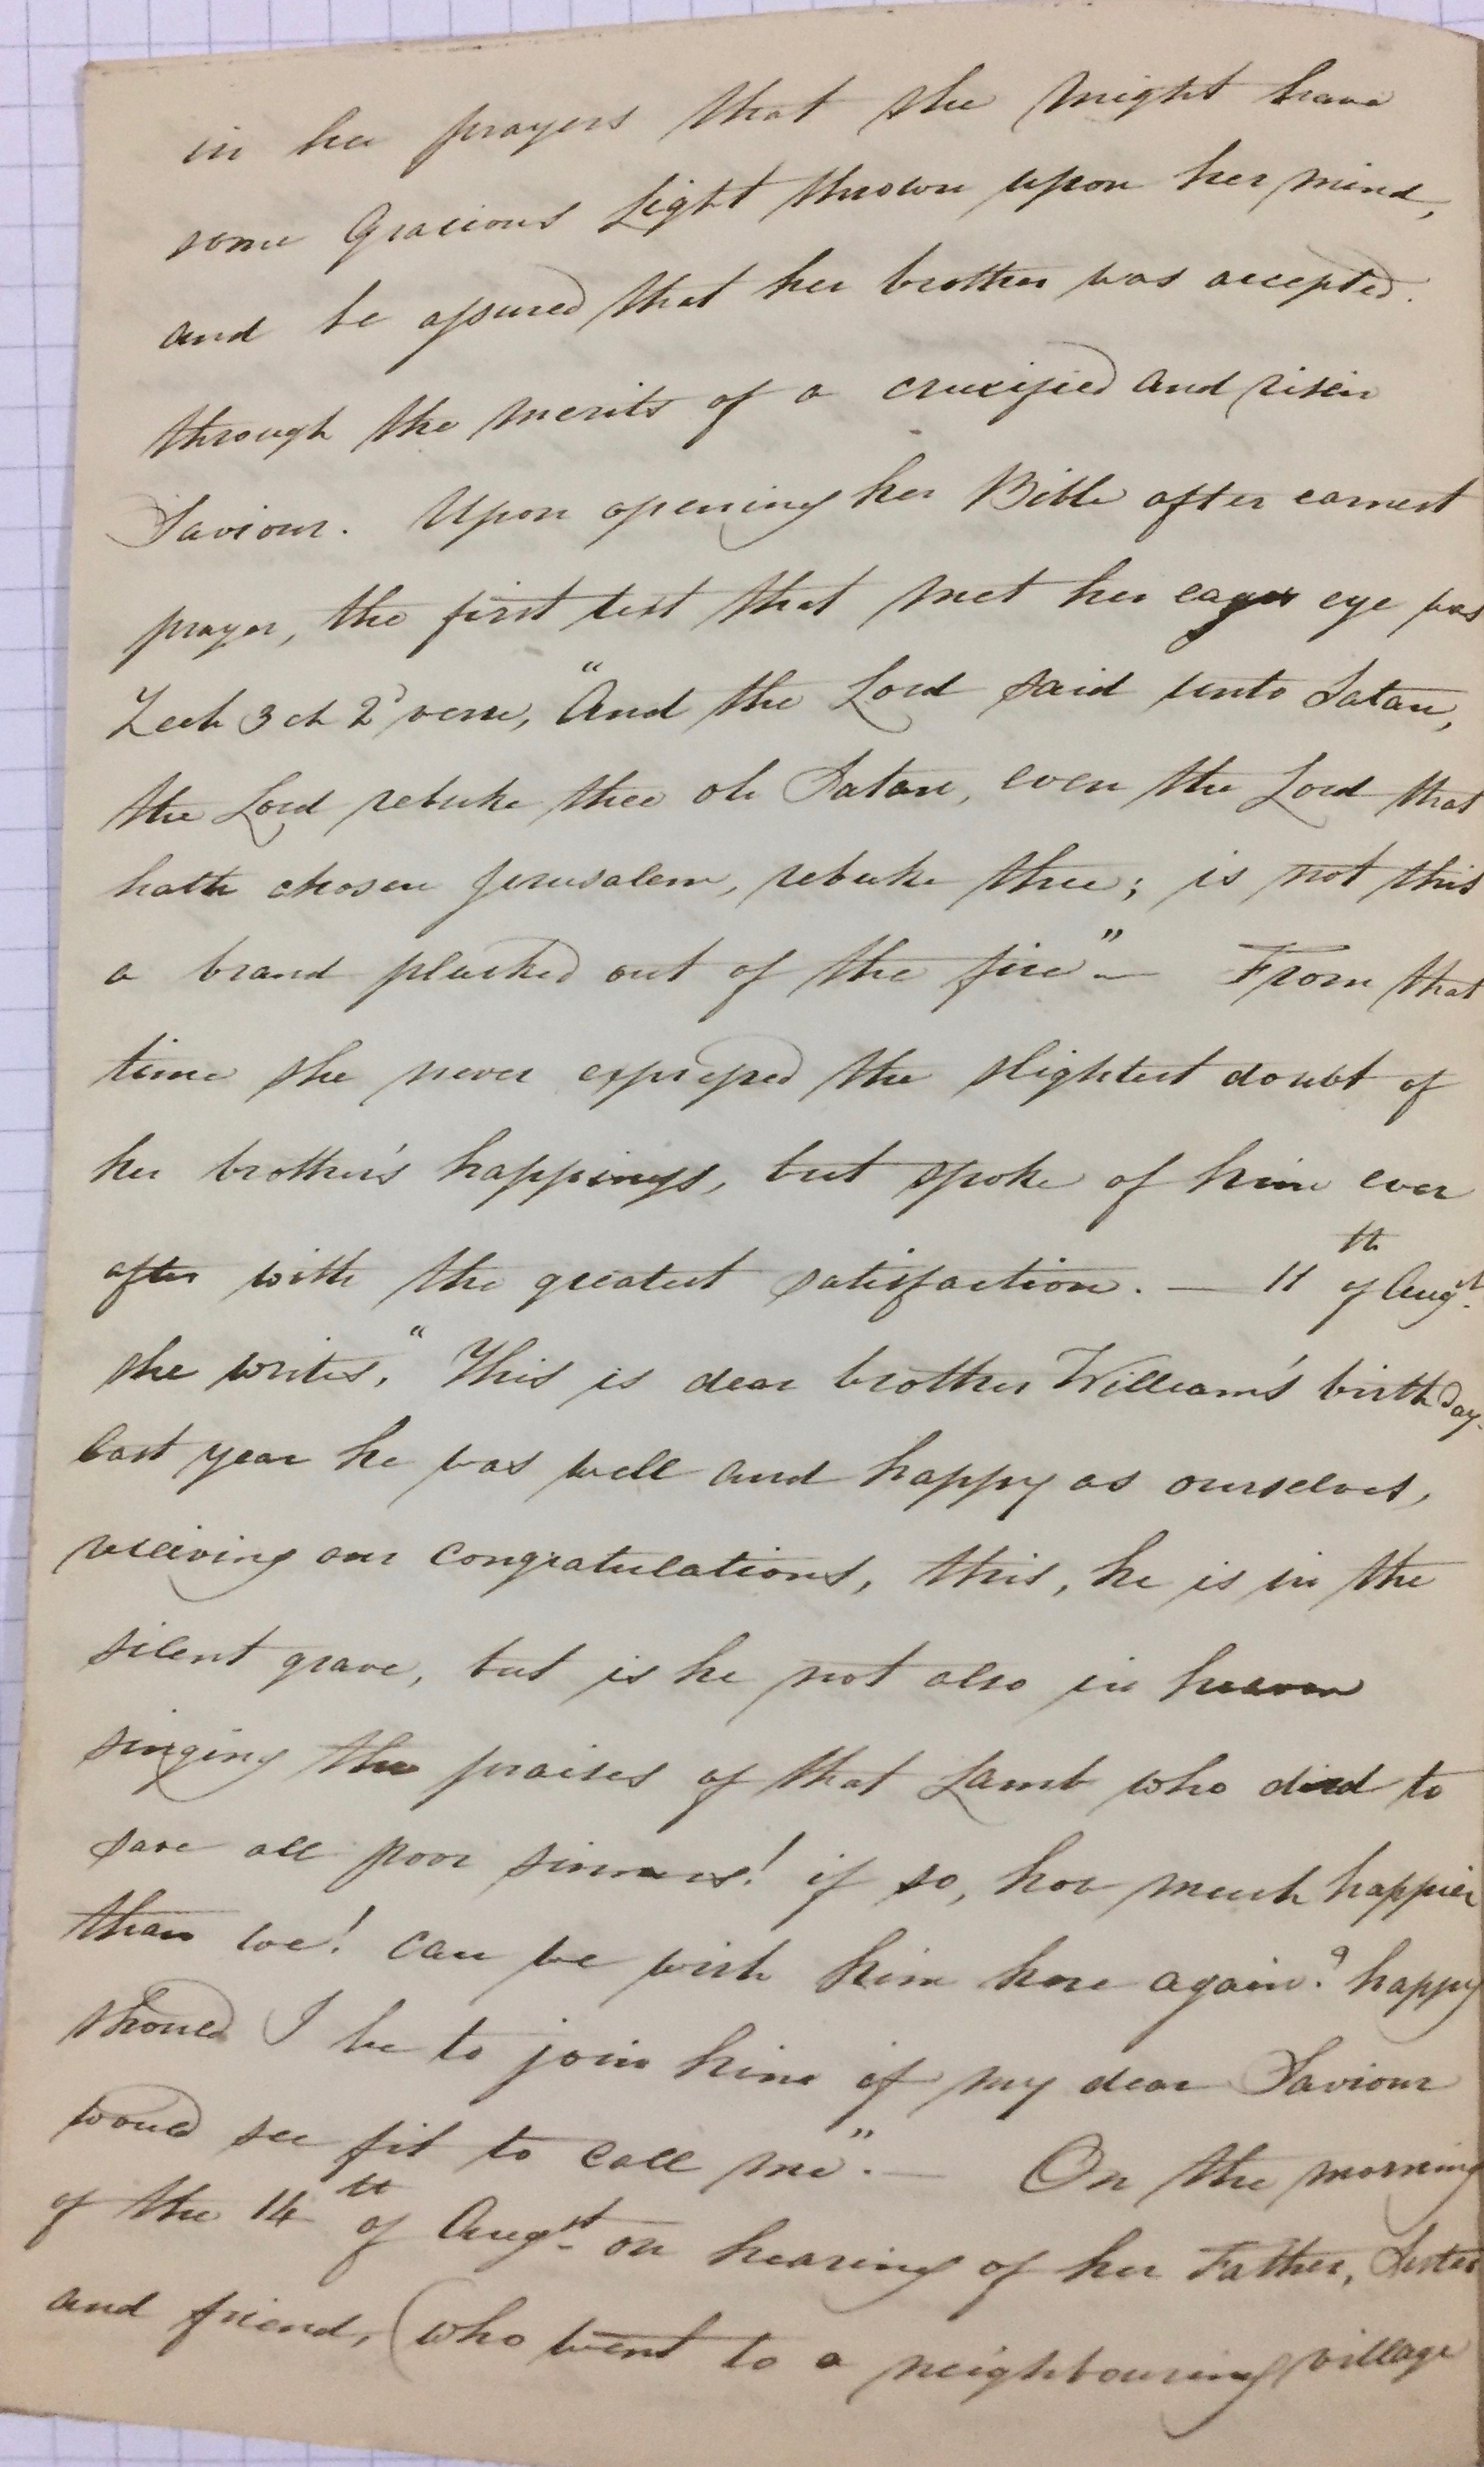 in her prayers that she might have
some Gracious Light thrown upon her mind,
and be assured that her brother was accepted.
through the merits of a crucified and risen
Saviour. Upon opening her Bible after earnest
prayer, the first text that met her eager eye was
Zech 3 ch 2d verse, "And the Lord said unto Satan,
the Lord rebuke thee oh Satan, even the Lord that
hath chosen Jerusalem, rebuke thee; is not this
a brand plucked out of the fire" — From that
time she never expressed the slightest doubt of
her brother's happiness, but spoke of him ever
after with the greatest satisfaction. — 11th of Augst
she writes, "This is dear brother William's birthday
last year he was well and happy as ourselves,
receiving our congratulations, this, he is in the
silent grave, but is he not also in heaven
singing the praises of that Lamb who died to
save all poor sinners! if so, how much happier
than we! can we wish him here again? happy
should I be to join him if my dear Saviour
would see fit to call me". — On the morning
of the 14th of Augst on hearing of her Father, Sister
and friend, (who went to a neighbouring village